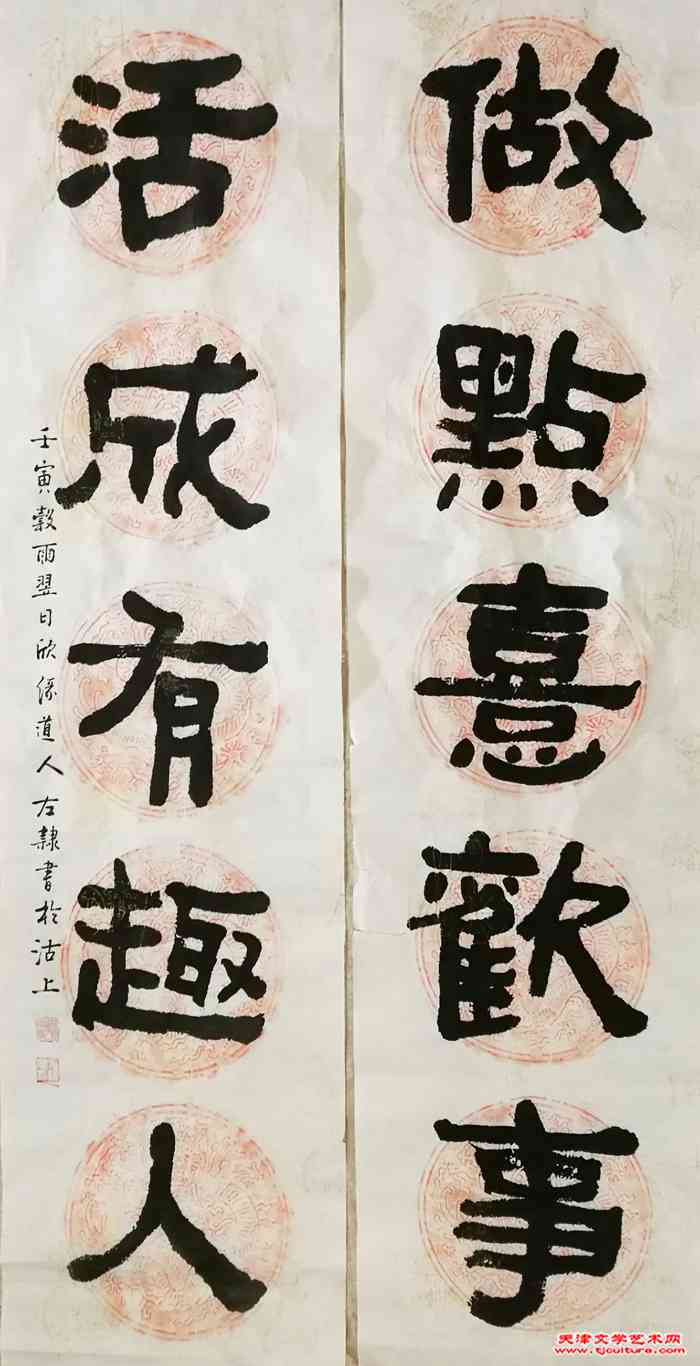 做點喜歡事
活成有趣人
壬寅穀雨翌日欣緣道人左隸書於沽上
天津文学艺术网
www.tjculture.com